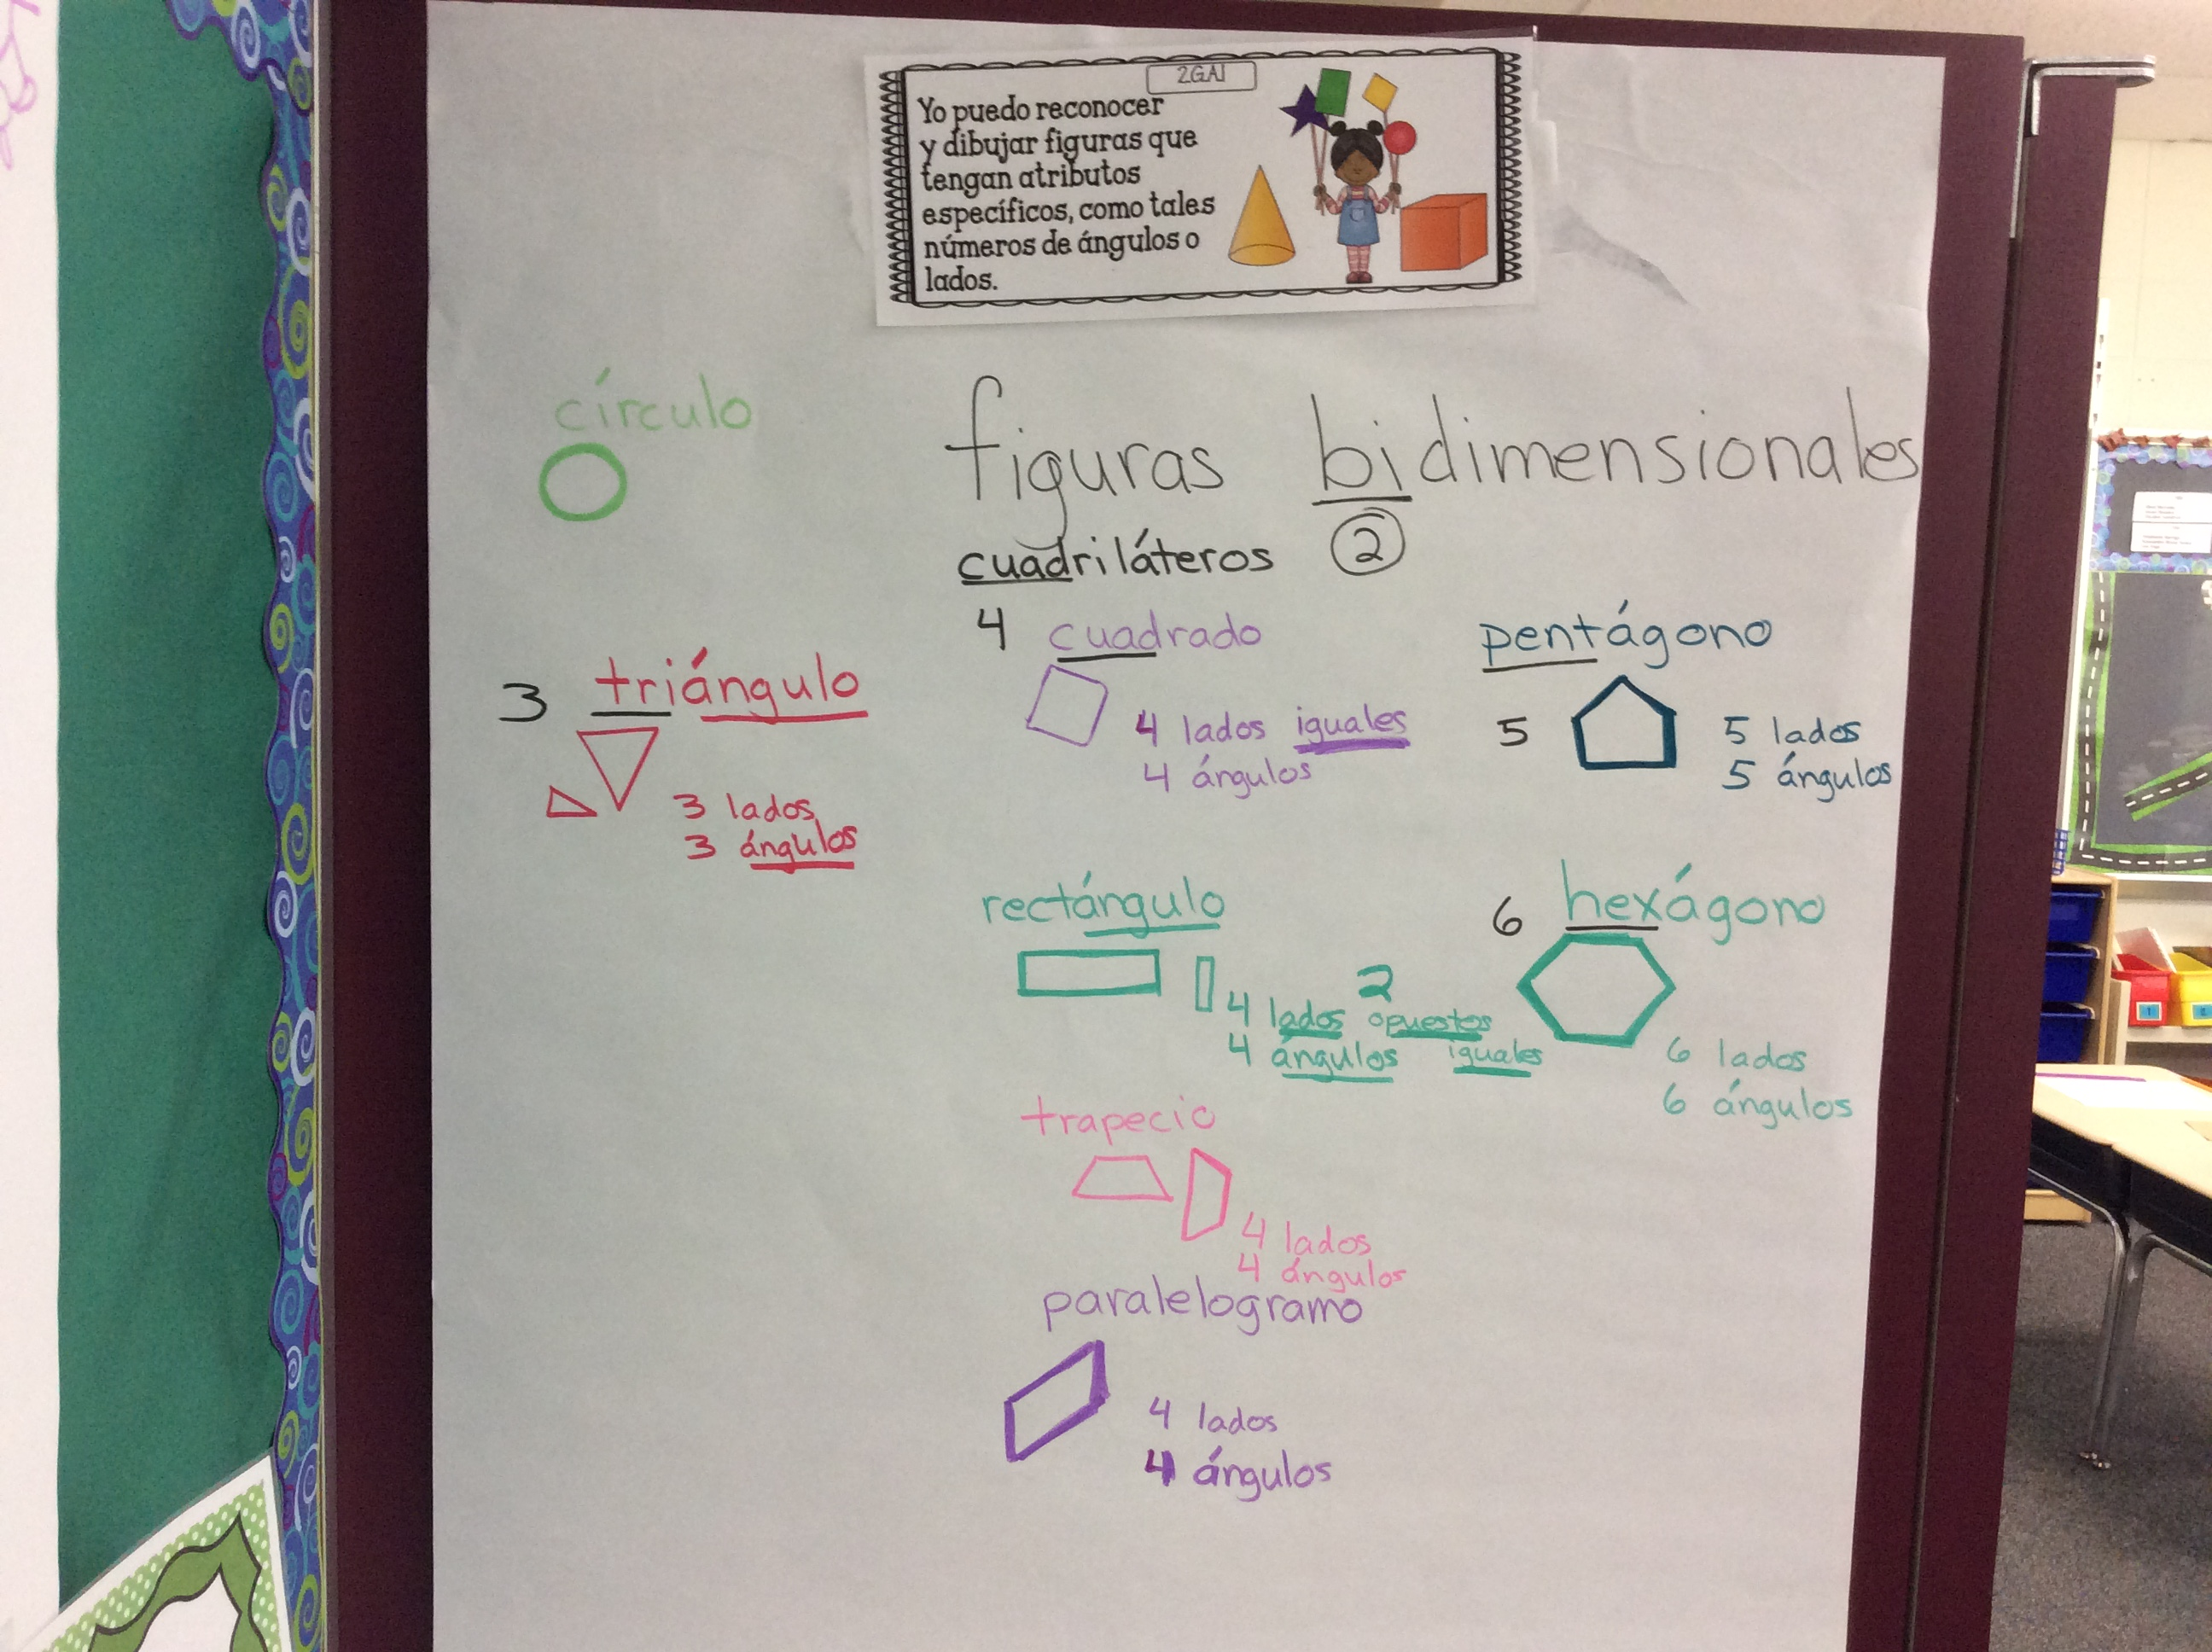 2.G.A.1
Yo puedo reconocer
y dibujar figuras que
tengan atributos
específicos, como tales
números de ángulos o
lados.
círculo
figuras bidimensionales
2
cuadriláteros
4 cuadrado
4 lados iguales
4 ángulos
pentágono
5
5 lados
5 ángulos
3 triángulo
3 lados
3 ángulos
rectángulo
2
4 lados opuestos
4 ángulos iguales
6 hexágono
6 lados
6 ángulos
trapecio
4 lados
4 ángulos
paralelogramo
4 lados
4 ángulos